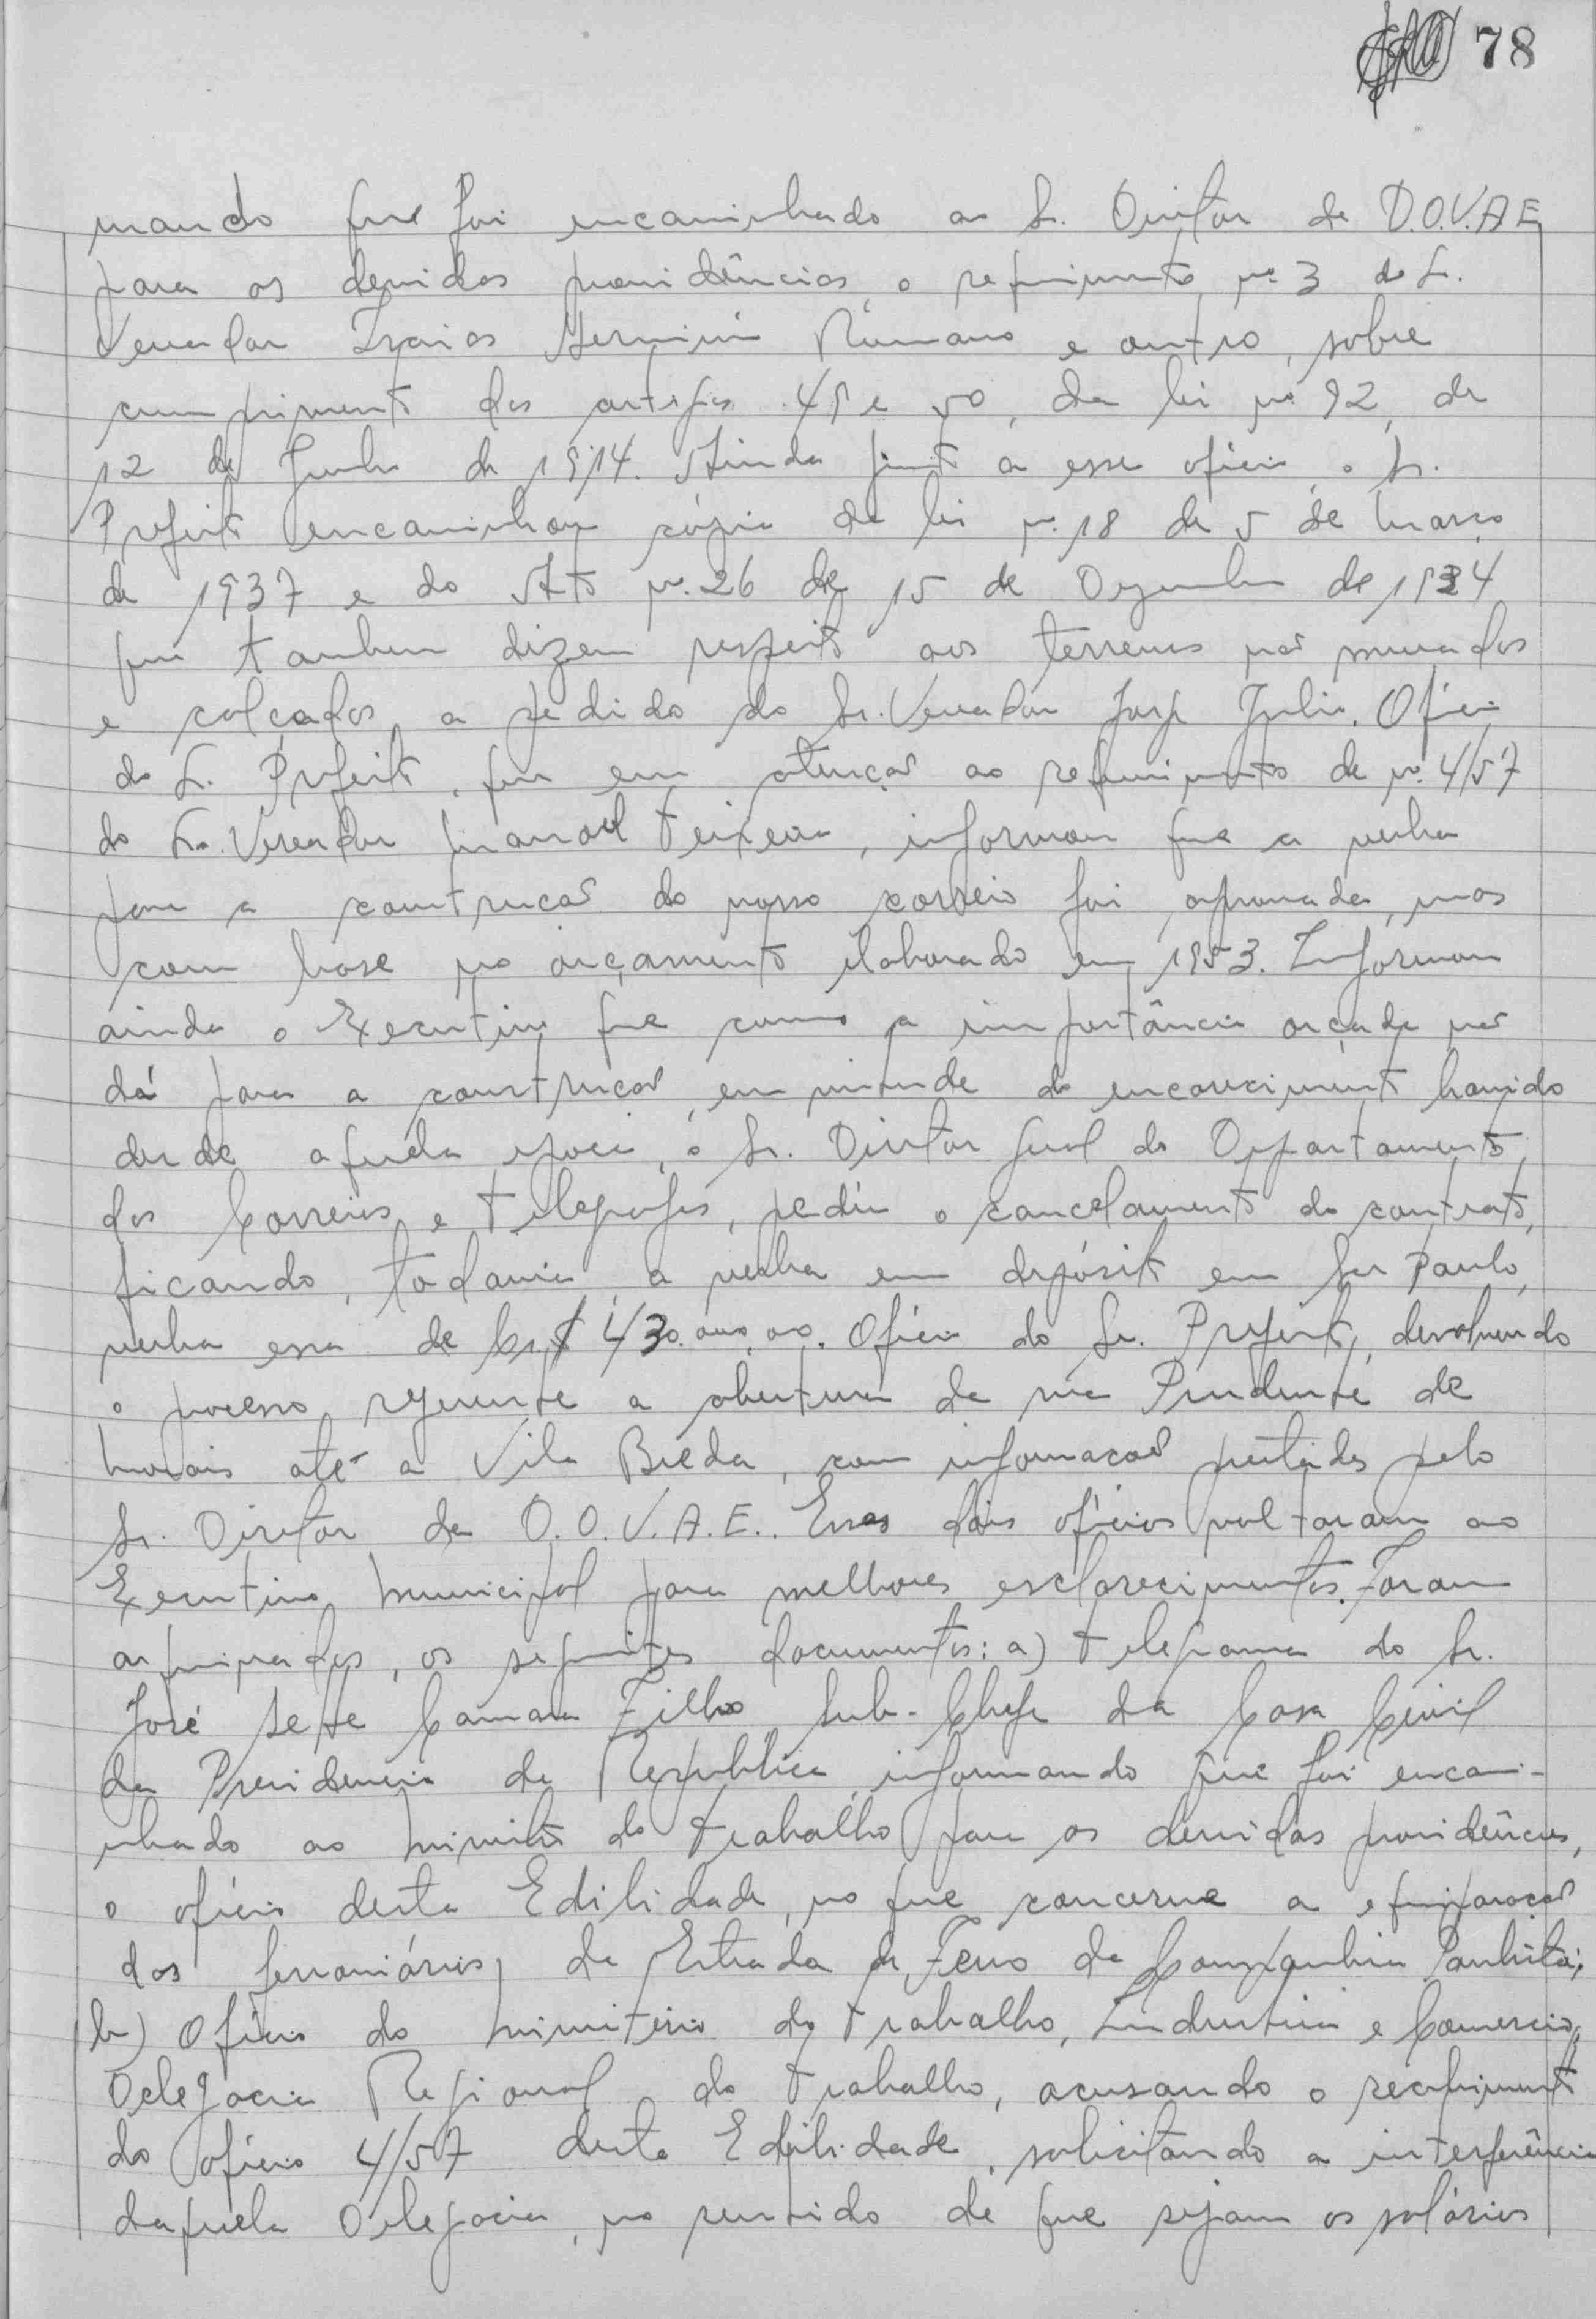 78
mando que foi encaminhado ao Sr. Diretor da D.O.V.A.E
para as devidas providências, o requerimento nº 3 do Sr.
Vereador Izaias Herminio Romano e outro, sobre
cumprimento dos artigos 49 e 50, da lei nº 92, de
12 de Junho de 1914. Ainda junto a esse ofício, o Sr.
Prefeito encaminhou cópia da lei nº 18 de 5 de março
de 1937 e do Ato nº 26 de 15 de Dezembro de 1934
que tambem dizem respeito aos terrenos não murados
e calçados, a pedido do Sr. Vereador José Julio. Ofício
do Sr. Prefeito, que em atenção ao requerimento de nº 4/57
do Sr. Vereador Manoel Teixeira, informou que a verba
para a construção do nosso correio foi aprovada, mas
com base no orçamento elaborado em 1953. Informou
ainda o Executivo que como a importância orçada não
dá para a construção, em virtude do encarecimento havido
desde aquela epoca, o Sr. Diretor Geral do Departamento
dos Correios e Telegrafos, pediu o cancelamento do contrato,
ficando, todavia, a verba em depósito em São Paulo,
verba essa de Cr.$ 430.000,00. Ofício do Sr. Prefeito, devolvendo
o processo referente a abertura da rua Prudente de
Morais até a Vila Breda, com informação prestadas pelo
Sr. Diretor da D.O.V.A.E.. Esses dois ofícios voltaram ao
Executivo Municipal para melhores esclarecimentos. Foram
arquivados, os seguintes documentos: a) telegrama do Sr.
José Sette Camara Filho Sub-Chefe da Casa Civil
da Presidencia da Republica informando que foi encami-
nhado ao Ministro do Trabalho para as devidas providências,
o ofício desta Edilidade, no que concerne a equiparação
dos ferroviários da Estrada de Ferro da Companhia Paulista;
b) Ofício do Ministerio do Trabalho, Industria e Comercio,
Delegacia Regional do Trabalho, acusando o recebimento
do ofício 4/57 desta Edilidade, solicitando a interferência
daquela Delegacia, no sentido de que sejam os salários